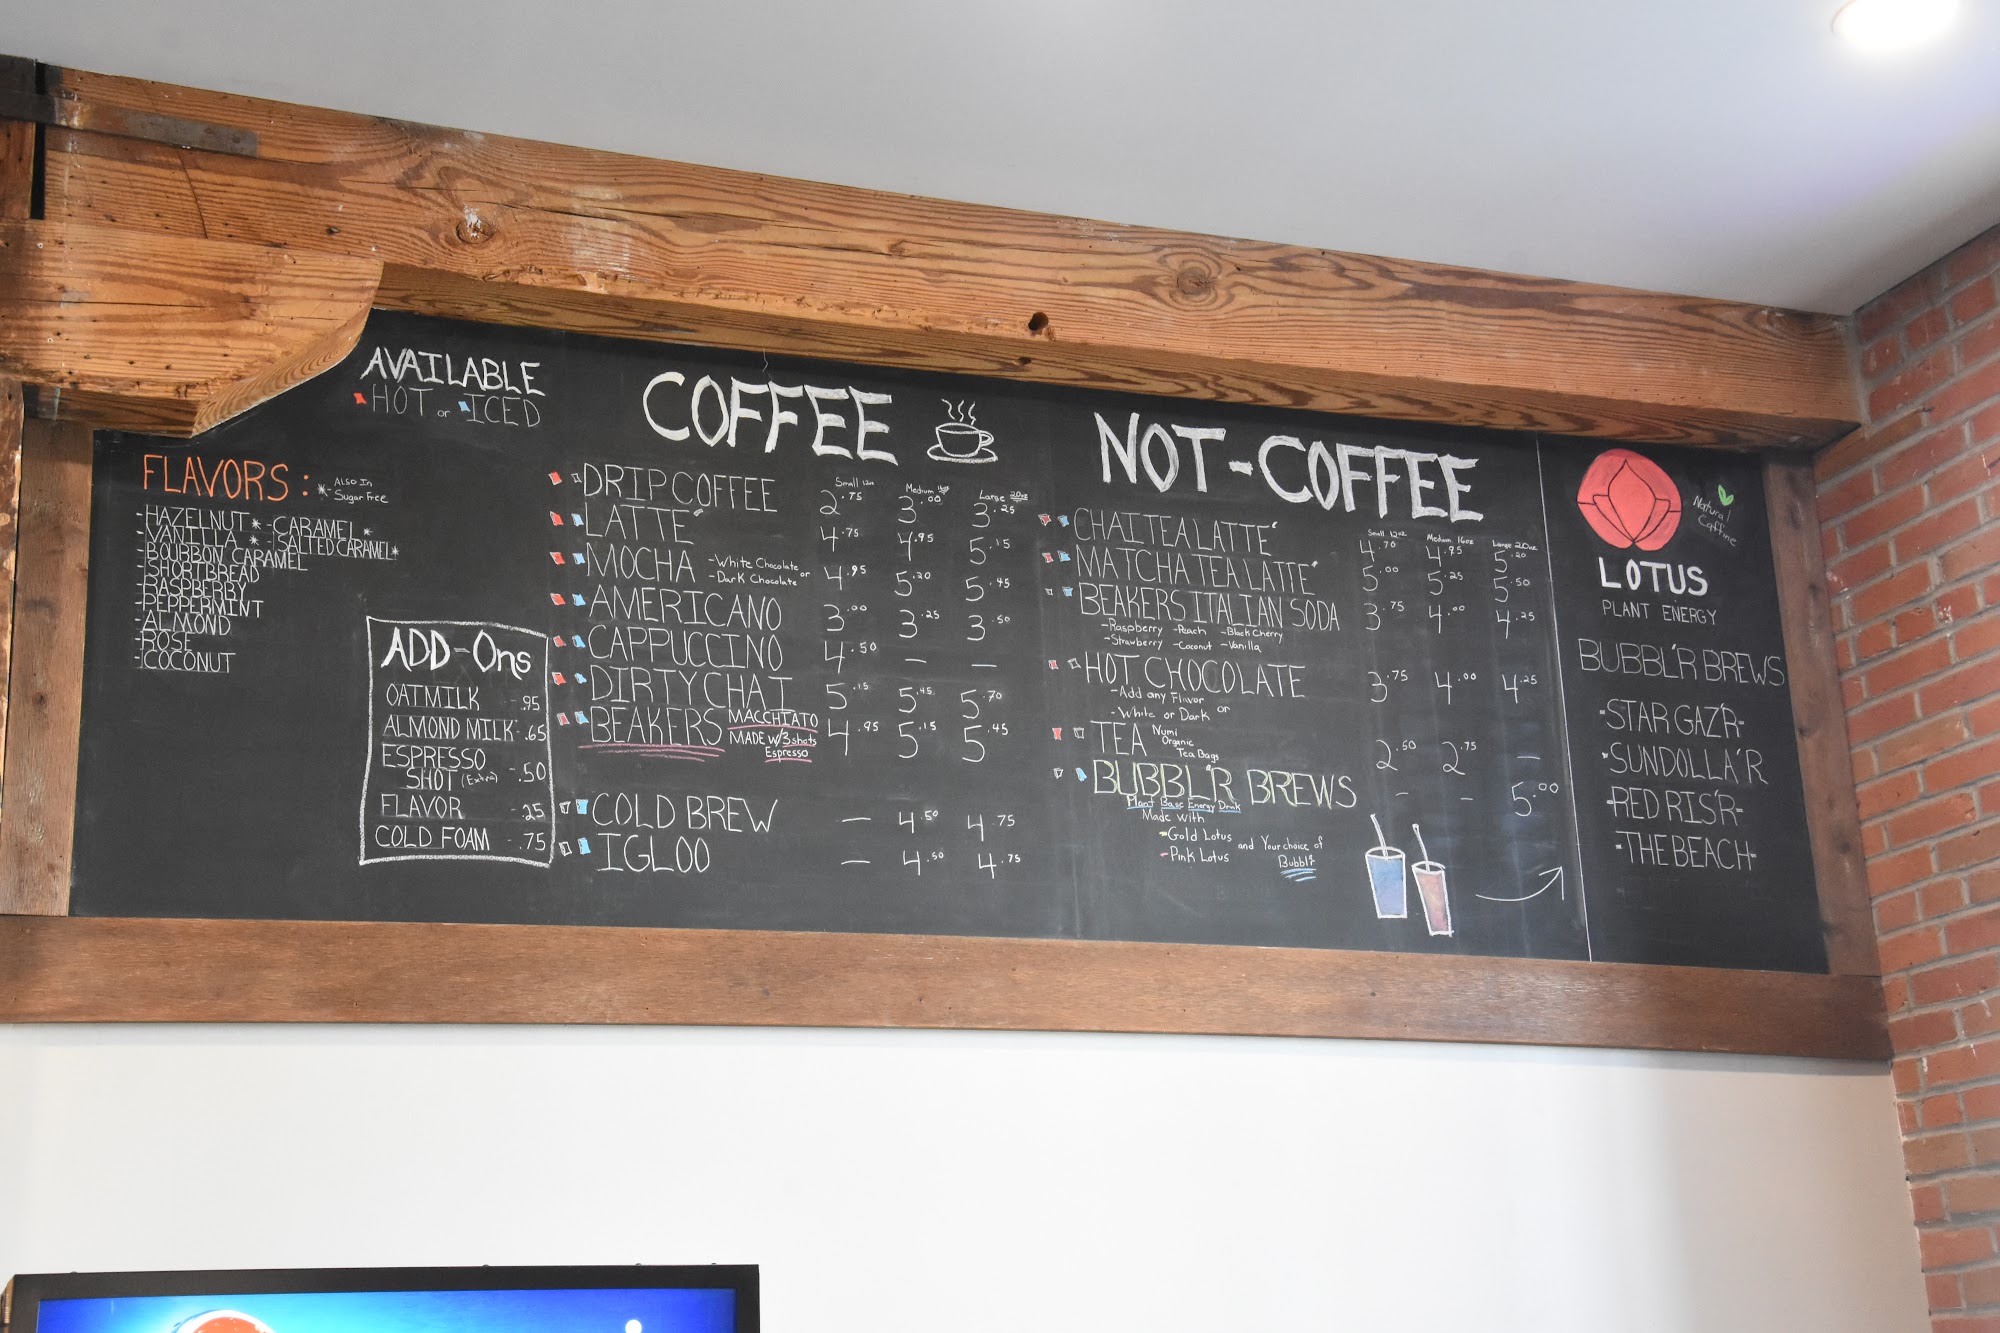 AVAILABLE
HOT or ICED
FLAVORS: *- Also In
Sugar Free
-HAZELNUT * -CARAMEL*
-VANILLA * -SALTED CARAMEL*
-BOURBON CARAMEL
-SHORTBREAD
-RASPBERRY
-PEPPERMINT
-ALMOND
-ROSE
-COCONUT
ADD-Ons
OATMILK - .95
ALMOND MILK - .65
ESPRESSO
SHOT (Extra) - .50
FLAVOR - .25
COLD FOAM - .75
COFFEE
Small 12oz Medium 16oz Large 20oz
DRIP COFFEE 2.75 3.00 3.25
LATTE 4.75 4.95 5.15
MOCHA -White Chocolate or
-Dark Chocolate 4.95 5.20 5.45
AMERICANO 3.00 3.25 3.50
CAPPUCCINO 4.50 — —
DIRTY CHAI 5.15 5.45 5.70
BEAKERS MACCHIATO 4.95 5.15 5.45
MADE w/3 shots
Espresso
COLD BREW — 4.50 4.75
IGLOO — 4.50 4.75
NOT-COFFEE
Small 12oz Medium 16oz Large 20oz
CHAI TEA LATTE 4.70 4.95 5.20
MATCHA TEA LATTE 5.00 5.25 5.50
BEAKERS ITALIAN SODA 3.75 4.00 4.25
-Raspberry -Peach -Black Cherry
-Strawberry -Coconut -Vanilla
HOT CHOCOLATE 3.75 4.00 4.25
-Add any Flavor
-White or Dark or
TEA Numi 2.50 2.75 —
Organic
Tea Bags
BUBBL'R BREWS - - 5.00
Plant Base Energy Drink
Made with
-Gold Lotus and Your choice of
-Pink Lotus Bubbl'r
Natural
Caffine
LOTUS
PLANT ENERGY
BUBBL'R BREWS
-STAR GAZ'R-
-SUNDOLLA'R
-RED RIS'R-
-THE BEACH-